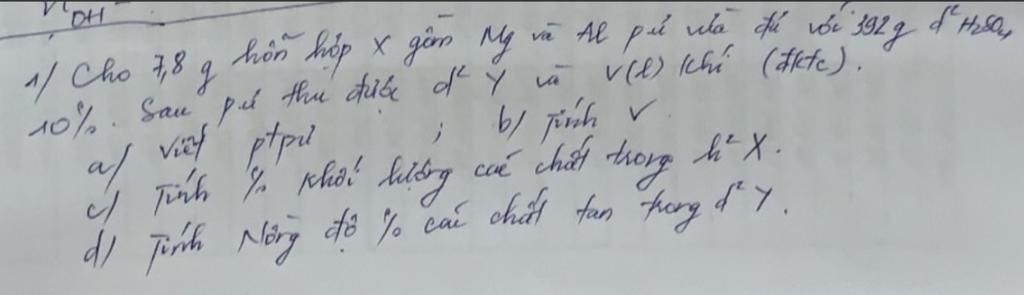 OH⁻
1) Cho 7,8 g hỗn hợp X gồm Mg và Al pứ vừa đủ với 392g d² H₂SO₄
10%. Sau pứ thu được d² Y và V(l) khí (đktc).
a) Viết ptpứ ; b) Tính V
c) Tính % khối lượng các chất trong h² X.
d) Tính Nồng độ % các chất tan trong d² Y.